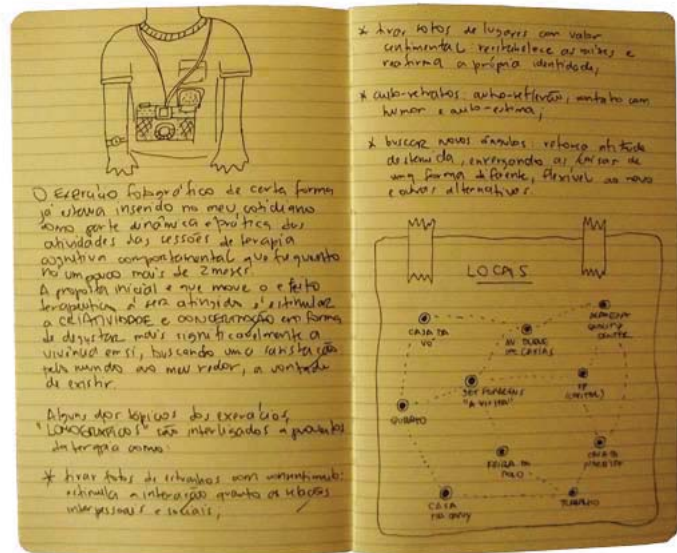 O Exercício fotográfico de certa forma
já estava inserido no meu cotidiano
como parte dinâmica e prática das
atividades das sessões de terapia
cognitiva comportamental que frequento
há um pouco mais de 2 meses.
A proposta inicial e que move o efeito
terapeutico a ser atingido é estimular
a CRIATIVIDADE e CONCENTRAÇÃO em forma
de degustar mais significavelmente a
vivência em si, buscando uma satisfação
pelo mundo ao meu redor, a vontade
de existir.
Alguns dos tópicos dos exercícios
"LOMOGRÁFICOS" são interligados a
da terapia como:
* tirar fotos de estranhos com consentimento:
estimula a interação quanto as relações
interpessoais e sociais;
* tirar fotos de lugares com valor
sentimental reestabelece as raízes e
reafirma a própria identidade;
* auto-retratos: auto-reflexão, contato com
humor e auto-estima;
* buscar novos ângulos: reforça atitude
destemida, enxergando as coisas de
uma forma diferente, flexível ao novo
e outras alternativas.
LOCAIS
CASA DA
VÓ
AV DUQUE
DE CAXIAS
CENTER
"A VISTA"
QUARTO
FEIRA DA
CASA DA
CASA
TRABALHO